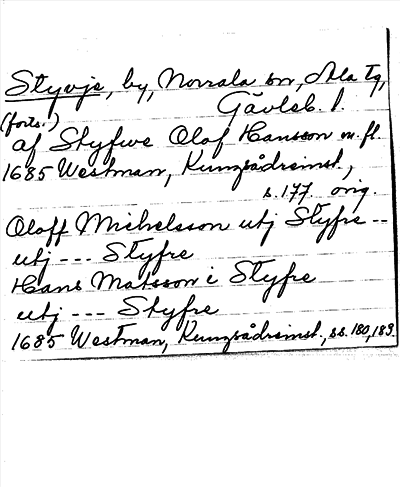 Styvje, by, Norrala sn, Ala tg,
Gävleb. l.
(forts.)
af Styfwe Olof Hansson m. fl.
1685 Westman, Kungsådreinst.,
s. 177. orig.
Oloff Michelsson utj Styfre --
utj --- Styfre
Hans Matsson i Styfre
utj --- Styfre
1685 Westman, Kungsådreinst., ss. 180, 189.